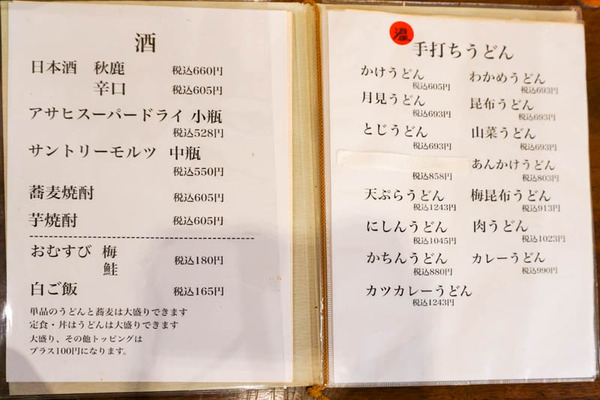 酒
日本酒 秋鹿 税込660円
辛口 税込605円
アサヒスーパードライ 小瓶
税込528円
サントリーモルツ 中瓶
税込550円
蕎麦焼酎 税込605円
芋焼酎 税込605円
おむすび 梅 税込180円
鮭
白ご飯 税込165円
単品のうどんと蕎麦は大盛りできます
定食・丼はうどんは大盛りできます
大盛り、その他トッピングは
プラス100円になります。
温
手打ちうどん
かけうどん
税込605円
月見うどん
税込693円
とじうどん
税込693円
税込858円
天ぷらうどん
税込1243円
にしんうどん
税込1045円
かちんうどん
税込880円
カツカレーうどん
税込1243円
わかめうどん
税込693円
昆布うどん
税込693円
山菜うどん
税込693円
あんかけうどん
税込803円
梅昆布うどん
税込913円
肉うどん
税込1023円
カレーうどん
税込990円